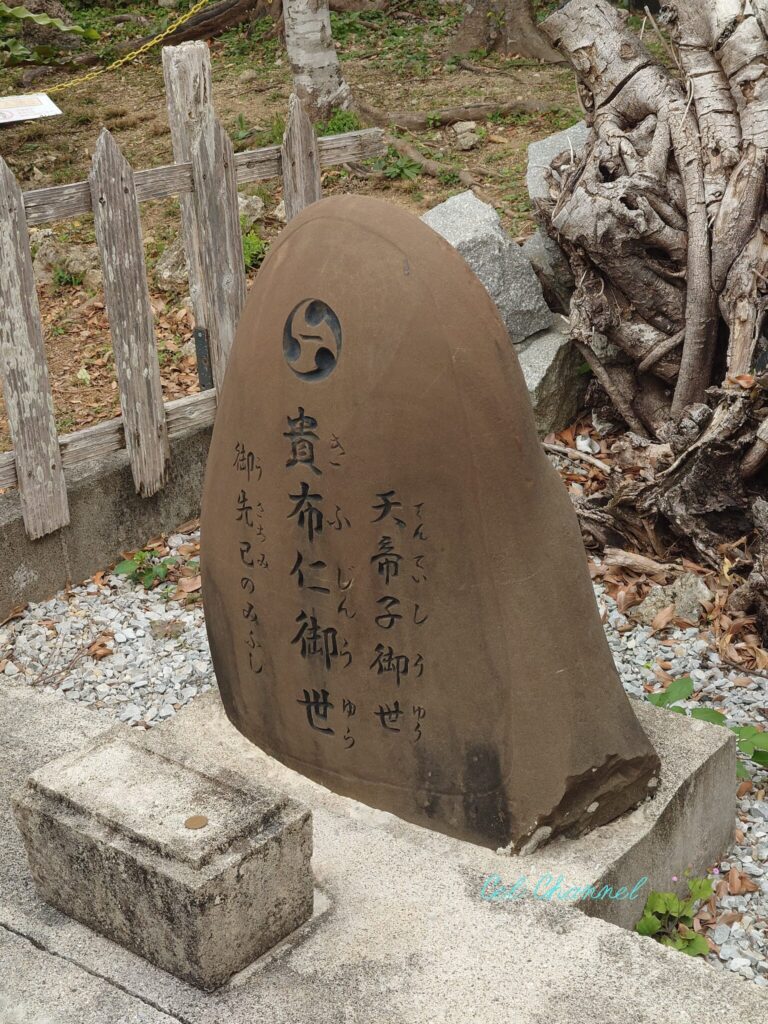 天帝子御世
てんていしうゆう
貴布仁御世
きふじんうゆう
御先巳のみふし
うさちみ
Cel Channel